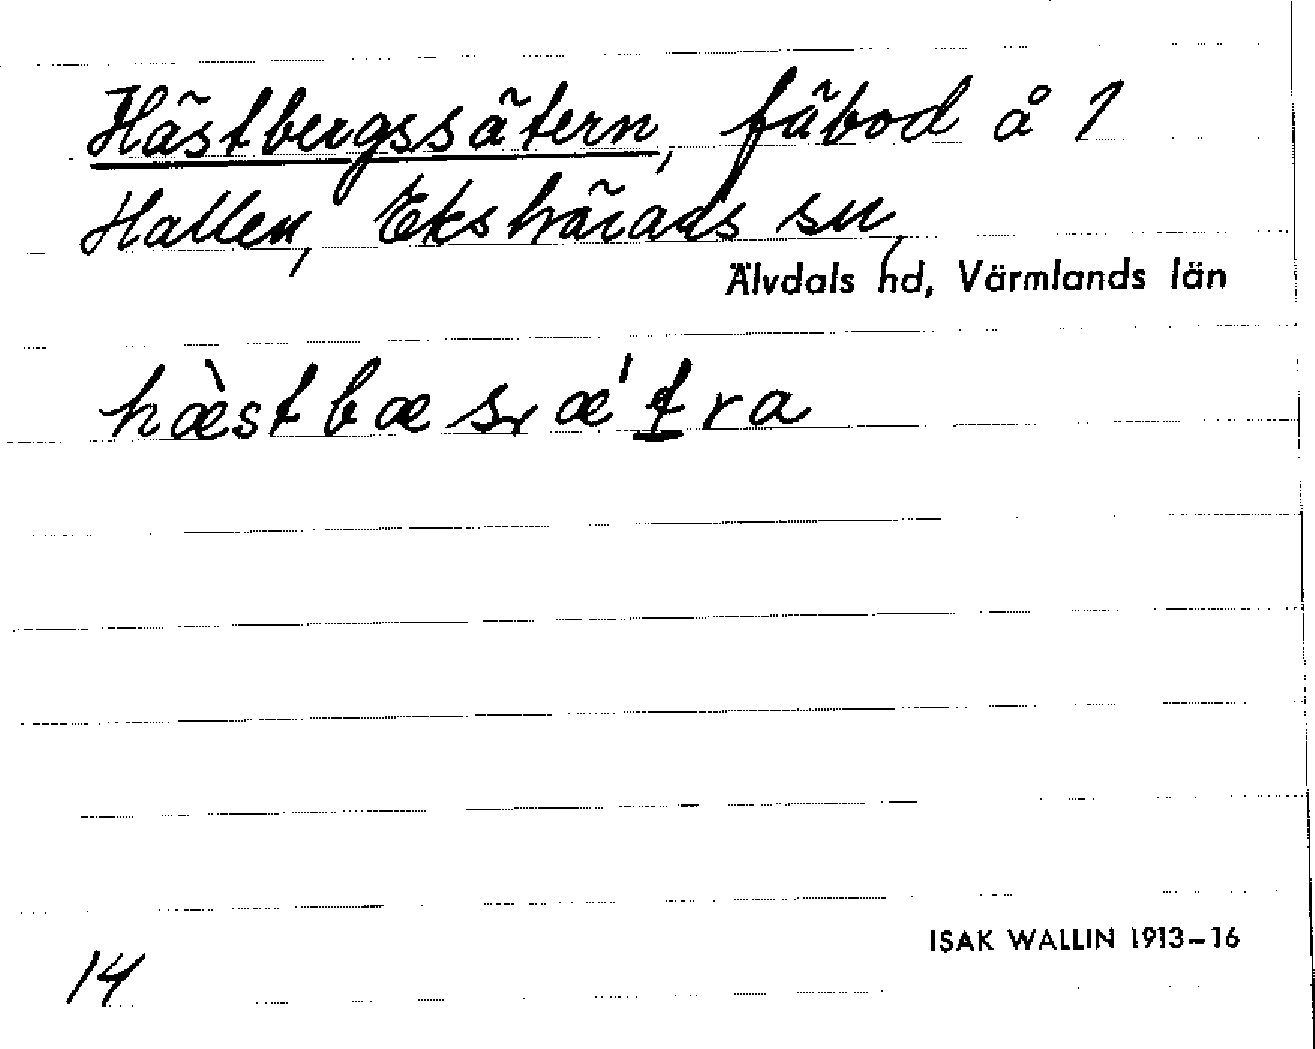 Hästbergssätern, fäbod å 1
Hallen, Ekshärads sn,
Älvdals hd, Värmlands län
hæ̀stbæsæ'tra
ISAK WALLIN 1913–16
14